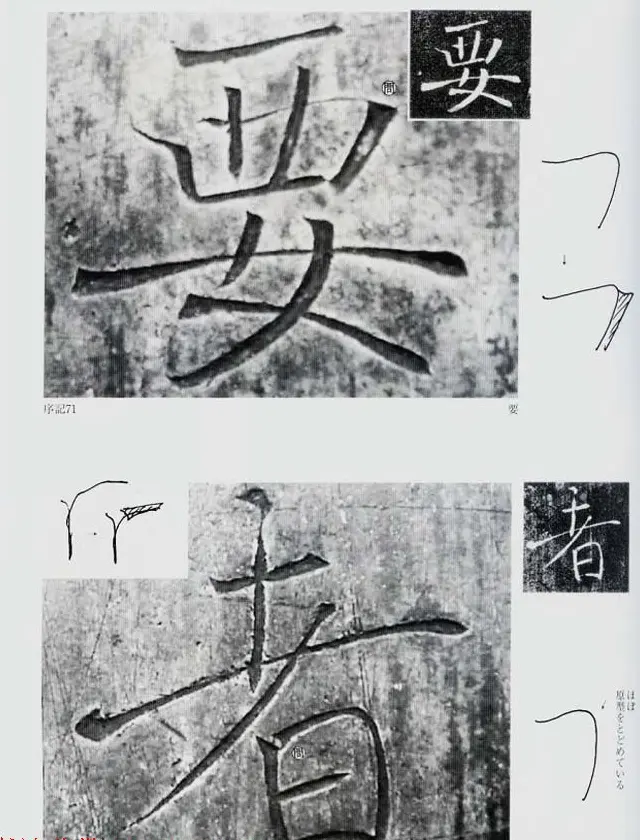 要
要
序記71
要
者
者
ほぼ
原型をとどめている